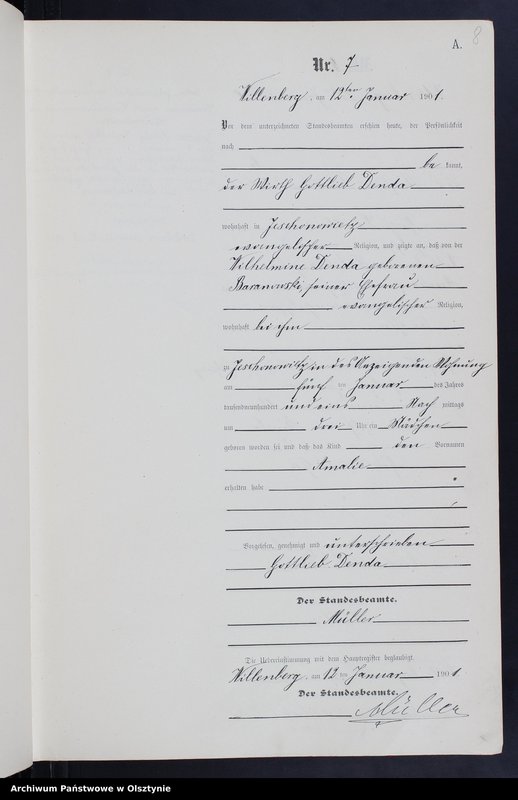 A.
8
Nr. 7
Willenberg, am 12ten Januar 1901.
Vor dem unterzeichneten Standesbeamten erschien heute, der Persönlichkeit
nach
bekannt,
der Wirth Gottlieb Denda
wohnhaft in Jeschonowitz
evangelischer Religion, und zeigte an, daß von der
Wilhelmine Denda geborenen
Baranowski, seiner Ehefrau
evangelischer Religion,
wohnhaft bei ihm
zu Jeschonowitz in des Anzeigenden Wohnung
am fünf ten Januar des Jahres
tausendneunhundert und eins Nach mittags
um drei Uhr ein Mädchen
geboren worden sei und daß das Kind den Vornamen
Amalie
erhalten habe
Vorgelesen, genehmigt und unterschrieben
Gottlieb Denda
Der Standesbeamte.
Müller
Die Uebereinstimmung mit dem Hauptregister beglaubigt.
Willenberg, am 12 ten Januar 1901
Der Standesbeamte.
Müller
Archiwum Państwowe w Olsztynie